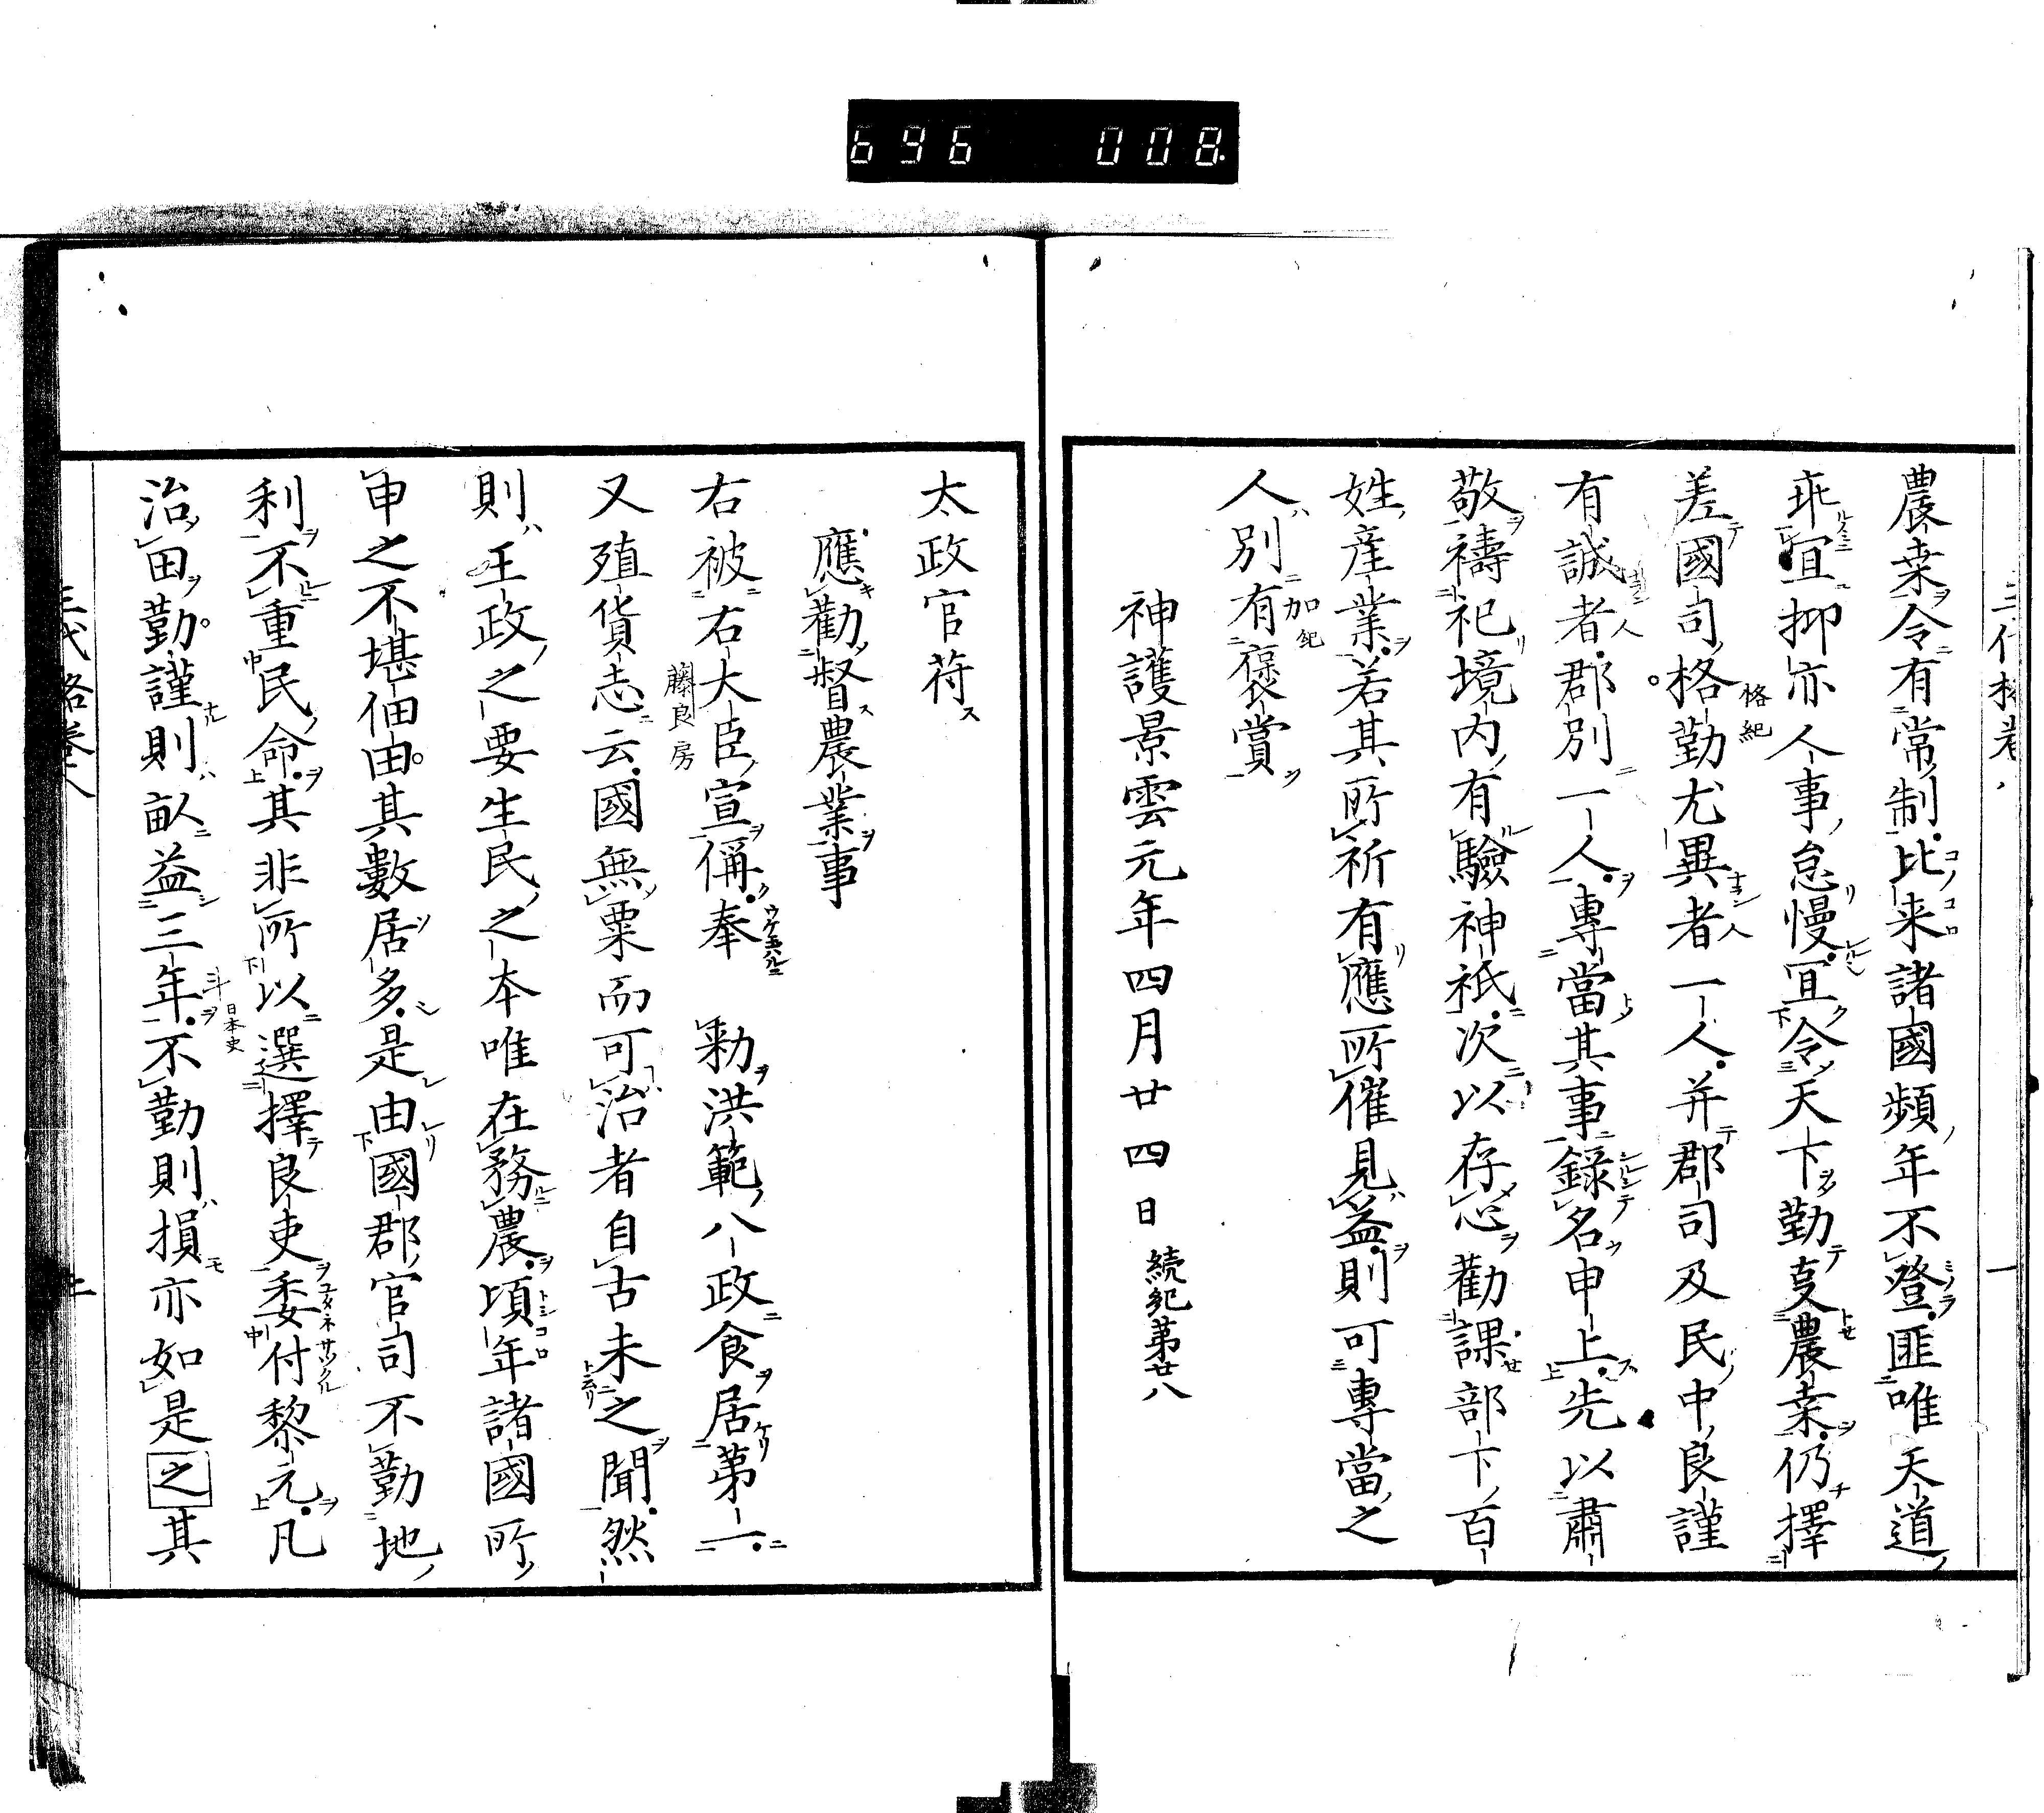 696 008
農桒令有常制比来諸國頻年不登匪唯天道
乖宜抑亦人事怠慢冝令天下勤叓農桒仍擇
差國司格勤尤異者一人并郡司及民中良謹
恪紀
有誠者郡別一人專當其事録名申上先以肅
敬禱祀境内有驗神祇次以存心勸課部下百
姓産業若其所祈有應所催見益則可專當之
人別有褒賞
加紀
神護景雲元年四月廿四日 続紀第廿八
太政官苻
應勸督農業事
右被右大臣宣偁奉 勅洪範八政食居第一
藤良房
又殖貨志云國無粟而可治者自古未之聞然
則王政之要生民之本唯在務農頃年諸國所
申之不堪佃田其數居多是由國郡官司不勤地
利不重民命其非所以選擇良吏委付黎元凡
治田勤謹則畝益三年不勤則損亦如是之其
斗日本史